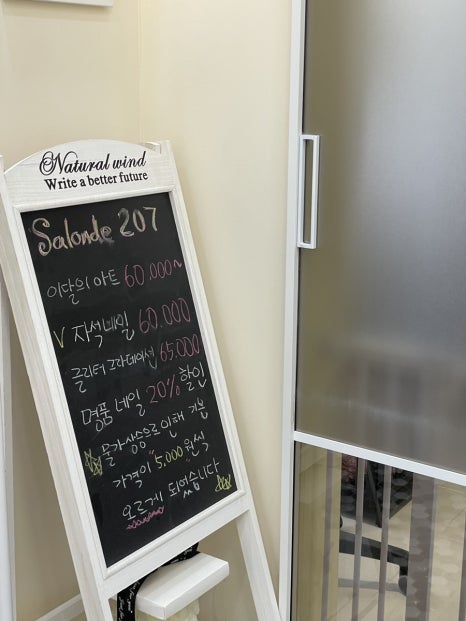 Natural wind
Write a better future
Salonde 207
이달의 아트 60.000~
V 자석네일 60.000
글리터 그라데이션 65.000
명품 네일 20% 할인
물가상승으로 인해 기본
가격이 "5,000원"씩
오르게 되었습니다